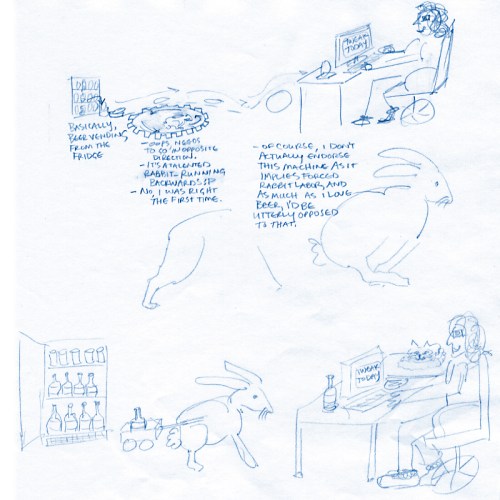 INWEAR
TODAY
BASICALLY,
BEER VENDING
FROM THE
FRIDGE
- OOPS, NEEDS
TO GO IN OPPOSITE
DIRECTION.
- IT'S A TALENTED
RABBIT - RUNNING
BACKWARDS :P
- NO, I WAS RIGHT
THE FIRST TIME.
- OF COURSE, I DON'T
ACTUALLY ENDORSE
THIS MACHINE AS IT
IMPLIES FORCED
RABBIT LABOR, AND
AS MUCH AS I LOVE
BEER, I'D BE
UTTERLY OPPOSED
TO THAT.
INWEAR
TODAY